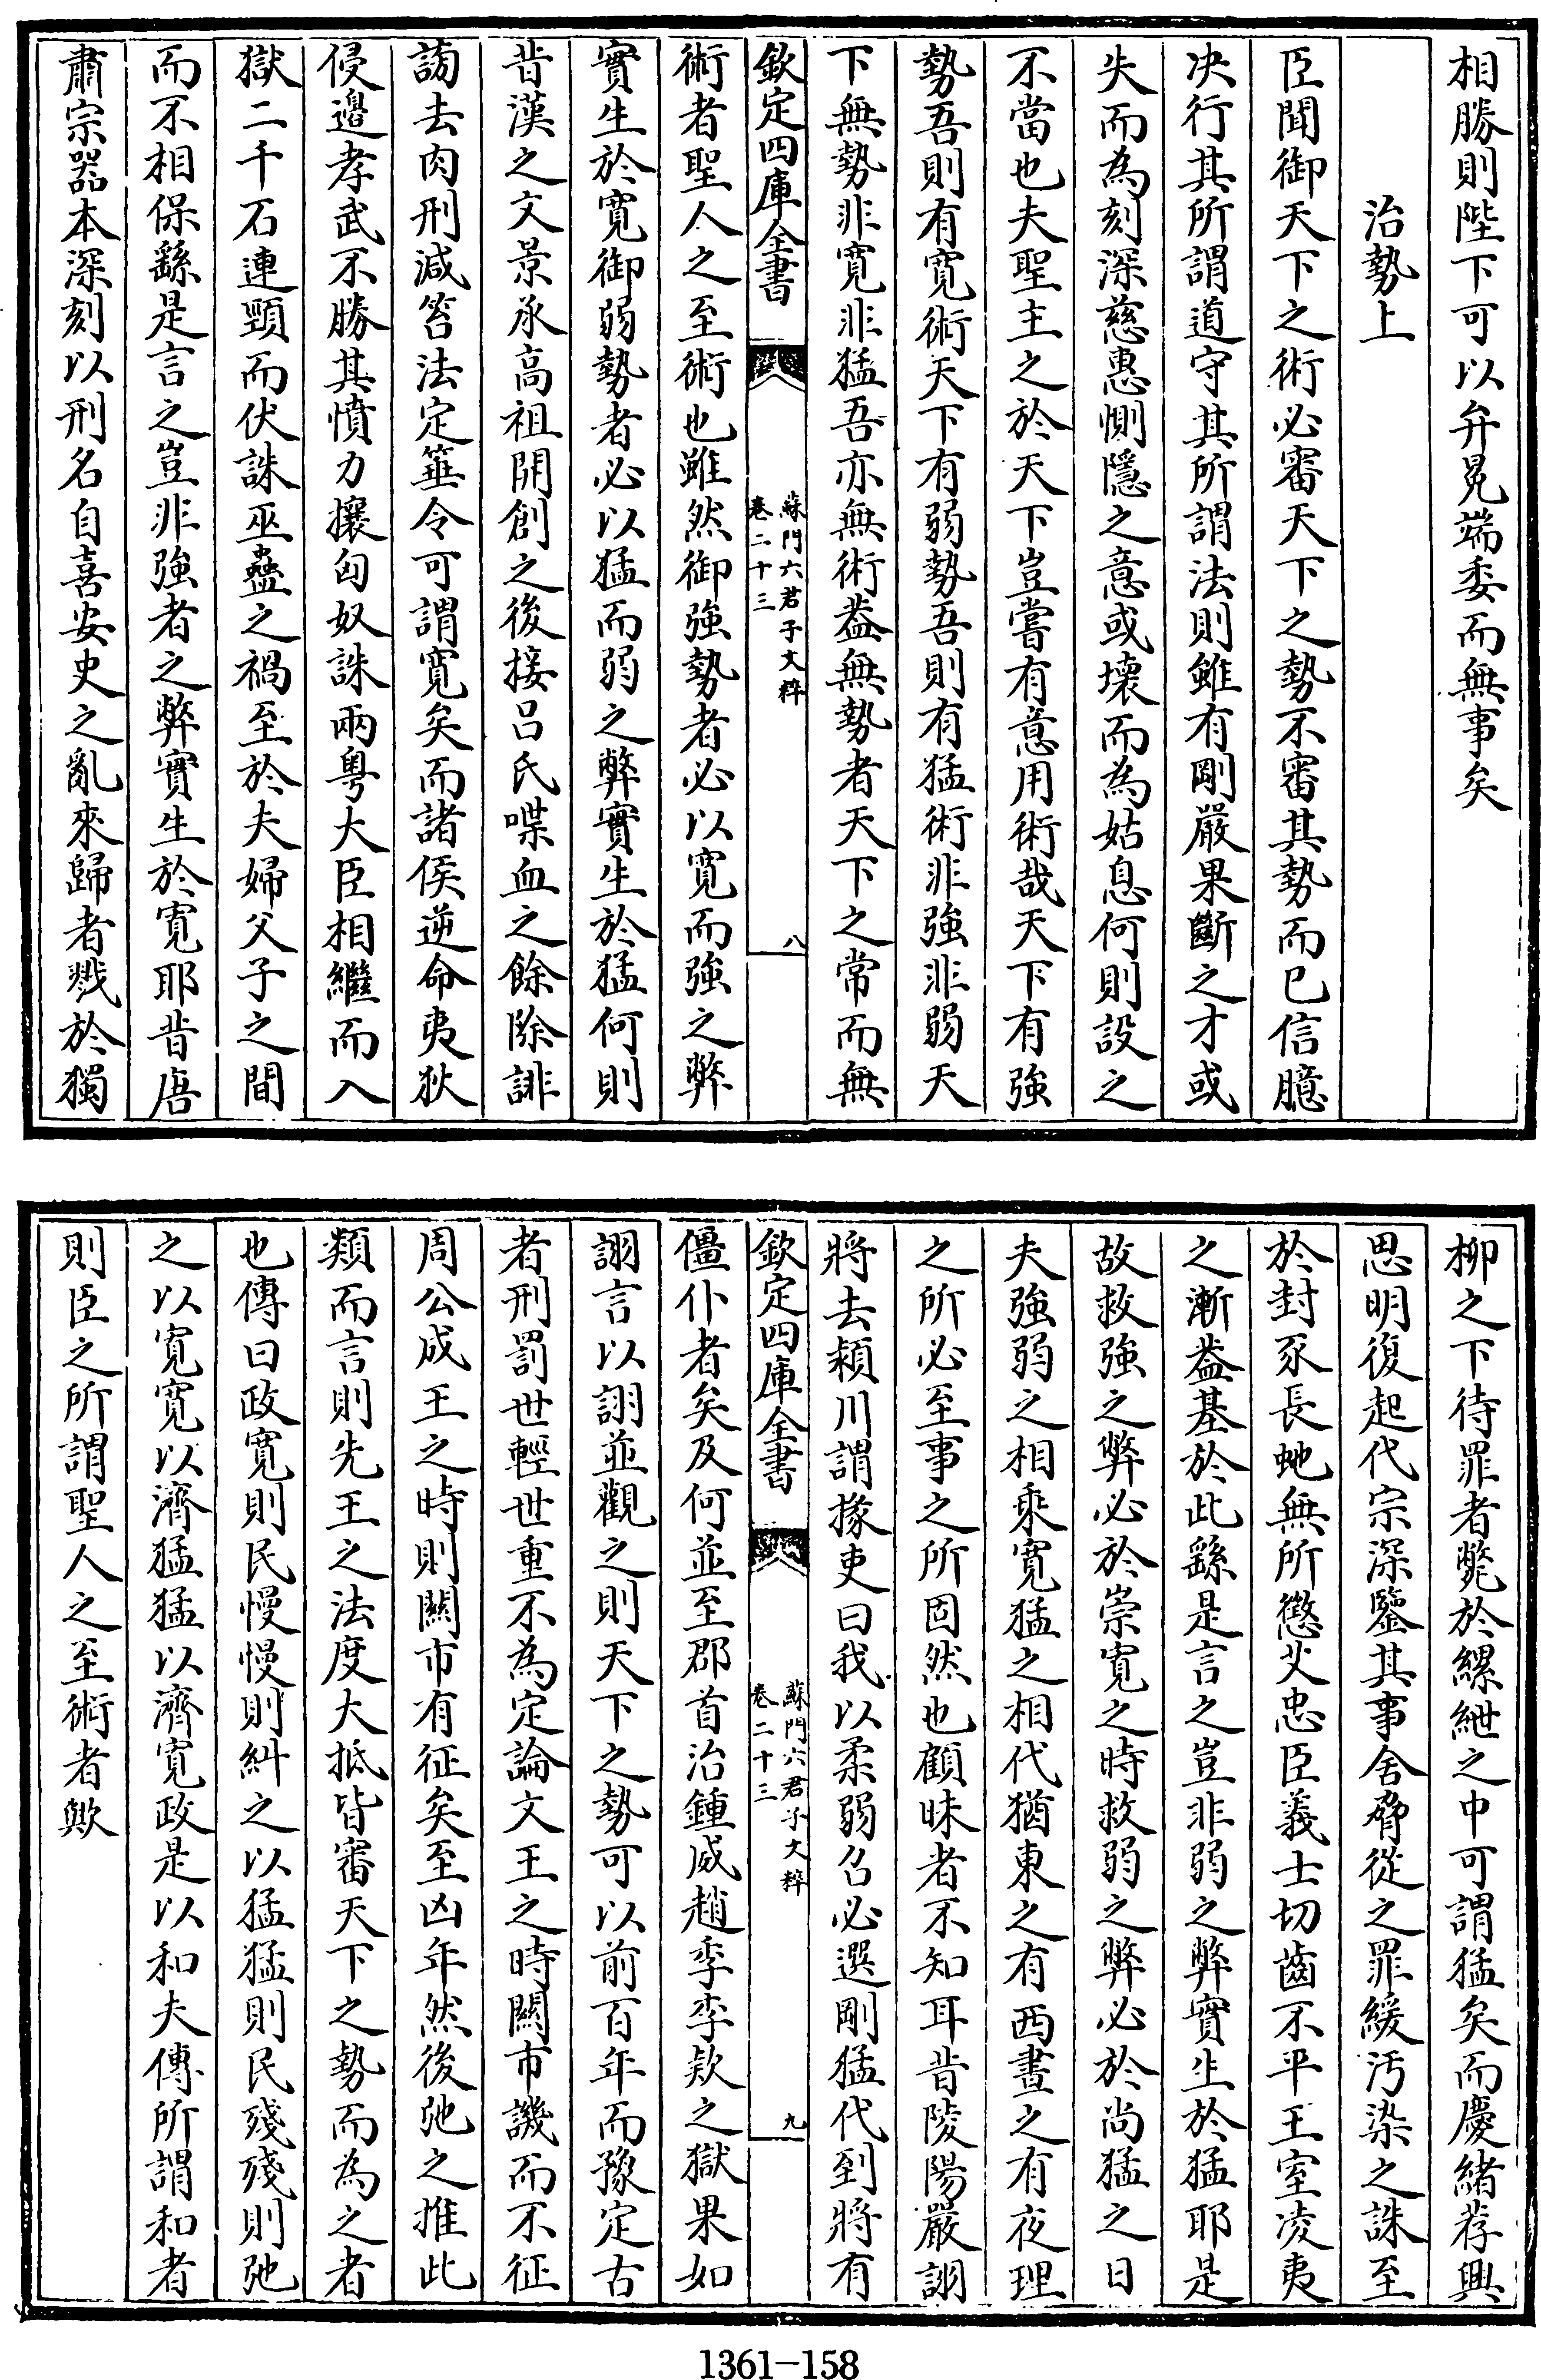 相勝則陛下可以弁冕端委而無事矣
治勢上
臣聞御天下之術必審天下之勢不審其勢而已信臆
决行其所謂道守其所謂法則雖有剛嚴果斷之才或
失而為刻深慈惠惻隱之意或壊而為姑息何則設之
不當也夫聖主之於天下豈嘗有意用術哉天下有強
勢吾則有寛術天下有弱勢吾則有猛術非強非弱天
下無勢非寛非猛吾亦無術葢無勢者天下之常而無
欽定四庫全書
蘇門六君子文粹
卷二十三
八
術者聖人之至術也雖然御強勢者必以寛而強之弊
實生於寛御弱勢者必以猛而弱之弊實生於猛何則
昔漢之文景承高祖開創之後接吕氏喋血之餘除誹
謗去肉刑減笞法定箠令可謂寛矣而諸侯逆命夷狄
侵邉孝武不勝其憤力攘匈奴誅兩粤大臣相繼而入
獄二千石連頸而伏誅巫蠱之禍至於夫婦父子之間
而不相保繇是言之豈非強者之弊實生於寛耶昔唐
肅宗器本深刻以刑名自喜安史之亂來歸者戮於獨
柳之下待罪者斃於縲紲之中可謂猛矣而慶緒荐興
思明復起代宗深鑒其事舍脅從之罪緩汚染之誅至
於封豕長虵無所懲艾忠臣義士切齒不平王室凌夷
之漸葢基於此繇是言之豈非弱之弊實生於猛耶是
故救強之弊必於崇寛之時救弱之弊必於尚猛之日
夫強弱之相乗寛猛之相代猶東之有西晝之有夜理
之所必至事之所固然也顧昧者不知耳昔陵陽嚴詡
將去潁川謂掾吏曰我以柔弱召必選剛猛代到將有
欽定四庫全書
蘇門六君子文粹
卷二十三
九
僵仆者矣及何並至郡首治鍾威趙季李欵之獄果如
詡言以詡並觀之則天下之勢可以前百年而豫定古
者刑罰世輕世重不為定論文王之時關市譏而不征
周公成王之時則關市有征矣至凶年然後弛之推此
類而言則先王之法度大抵皆審天下之勢而為之者
也傳曰政寛則民慢慢則糾之以猛猛則民殘殘則弛
之以寛寛以濟猛猛以濟寛政是以和夫傳所謂和者
則臣之所謂聖人之至術者歟
1361-158